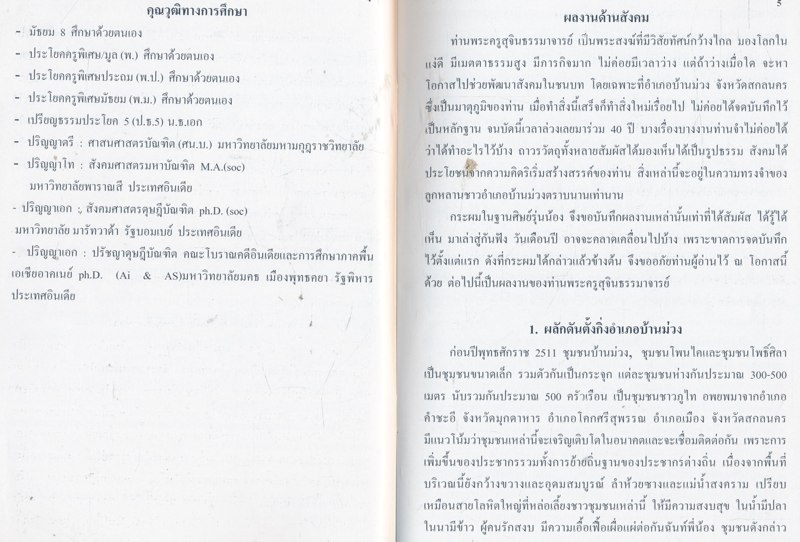 คุณวุฒิทางการศึกษา
- มัธยม 8 ศึกษาด้วยตนเอง
- ประโยคครูพิเศษ/มูล (พ.) ศึกษาด้วยตนเอง
- ประโยคครูพิเศษประถม (พ.ป.) ศึกษาด้วยตนเอง
- ประโยคครูพิเศษมัธยม (พ.ม.) ศึกษาด้วยตนเอง
- เปรียญธรรมประโยค 5 (ป.ธ.5) น.ธ.เอก
- ปริญญาตรี : ศาสนศาสตรบัณฑิต (ศน.บ.) มหาวิทยาลัยมหามกุฎราชวิทยาลัย
- ปริญญาโท : สังคมศาสตรมหาบัณฑิต M.A.(soc)
มหาวิทยาลัยพาราณสี ประเทศอินเดีย
- ปริญญาเอก : สังคมศาสตรดุษฎีบัณฑิต ph.D. (soc)
มหาวิทยาลัย มารัทวาด้า รัฐบอมเบย์ ประเทศอินเดีย
- ปริญญาเอก : ปรัชญาดุษฎีบัณฑิต คณะโบราณคดีอินเดียและการศึกษาภาคพื้น
เอเซียอาคเนย์ ph.D. (Ai & AS)มหาวิทยาลัยมคธ เมืองพุทธคยา รัฐพิหาร
ประเทศอินเดีย
5
ผลงานด้านสังคม
ท่านพระครูสุจินธรรมาจารย์ เป็นพระสงฆ์ที่มีวิสัยทัศน์กว้างไกล มองโลกใน
แง่ดี มีเมตตาธรรมสูง มีภารกิจมาก ไม่ค่อยมีเวลาว่าง แต่ถ้าว่างเมื่อใด จะหา
โอกาสไปช่วยพัฒนาสังคมในชนบท โดยเฉพาะที่อำเภอบ้านม่วง จังหวัดสกลนคร
ซึ่งเป็นมาตุภูมิของท่าน เมื่อทำสิ่งนี้เสร็จก็ทำสิ่งใหม่เรื่อยไป ไม่ค่อยได้จดบันทึกไว้
เป็นหลักฐาน จนบัดนี้เวลาล่วงเลยมาร่วม 40 ปี บางเรื่องบางงานท่านจำไม่ค่อยได้
ว่าได้ทำอะไรไว้บ้าง ถาวรวัตถุทั้งหลายสัมผัสได้มองเห็นได้เป็นรูปธรรม สังคมได้
ประโยชน์จากความคิดริเริ่มสร้างสรรค์ของท่าน สิ่งเหล่านี้จะอยู่ในความทรงจำของ
ลูกหลานชาวอำเภอบ้านม่วงตราบนานเท่านาน
กระผมในฐานศิษย์รุ่นน้อง จึงขอบันทึกผลงานเหล่านั้นเท่าที่ได้สัมผัส ได้รู้ได้
เห็น มาเล่าสู่กันฟัง วันเดือนปี อาจจะคลาดเคลื่อนไปบ้าง เพราะขาดการจดบันทึก
ไว้ตั้งแต่แรก ดังที่กระผมได้กล่าวแล้วข้างต้น จึงขออภัยท่านผู้อ่านไว้ ณ โอกาสนี้
ด้วย ต่อไปนี้เป็นผลงานของท่านพระครูสุจินธรรมาจารย์
1. ผลักดันตั้งกิ่งอำเภอบ้านม่วง
ก่อนปีพุทธศักราช 2511 ชุมชนบ้านม่วง, ชุมชนโพนไคและชุมชนโพธิ์ศิลา
เป็นชุมชนขนาดเล็ก รวมตัวกันเป็นกระจุก แต่ละชุมชนห่างกันประมาณ 300-500
เมตร นับรวมกันประมาณ 500 ครัวเรือน เป็นชุมชนชาวภูไท อพยพมาจากอำเภอ
คำชะอี จังหวัดมุกดาหาร อำเภอโคกศรีสุพรรณ อำเภอเมือง จังหวัดสกลนคร
มีแนวโน้มว่าชุมชนเหล่านี้จะเจริญเติบโตในอนาคตและจะเชื่อมติดต่อกัน เพราะการ
เพิ่มขึ้นของประชากรรวมทั้งการย้ายถิ่นฐานของประชากรต่างถิ่น เนื่องจากพื้นที่
บริเวณนี้ยังกว้างขวางและอุดมสมบูรณ์ ลำห้วยซางและแม่น้ำสงคราม เปรียบ
เหมือนสายโลหิตใหญ่ที่หล่อเลี้ยงชาวชุมชนเหล่านี้ ให้มีความสงบสุข ในน้ำมีปลา
ในนามีข้าว ผู้คนรักสงบ มีความเอื้อเฟื้อเผื่อแผ่ต่อกันฉันท์พี่น้อง ชุมชนดังกล่าว